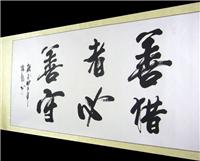 善猎
者必
善守